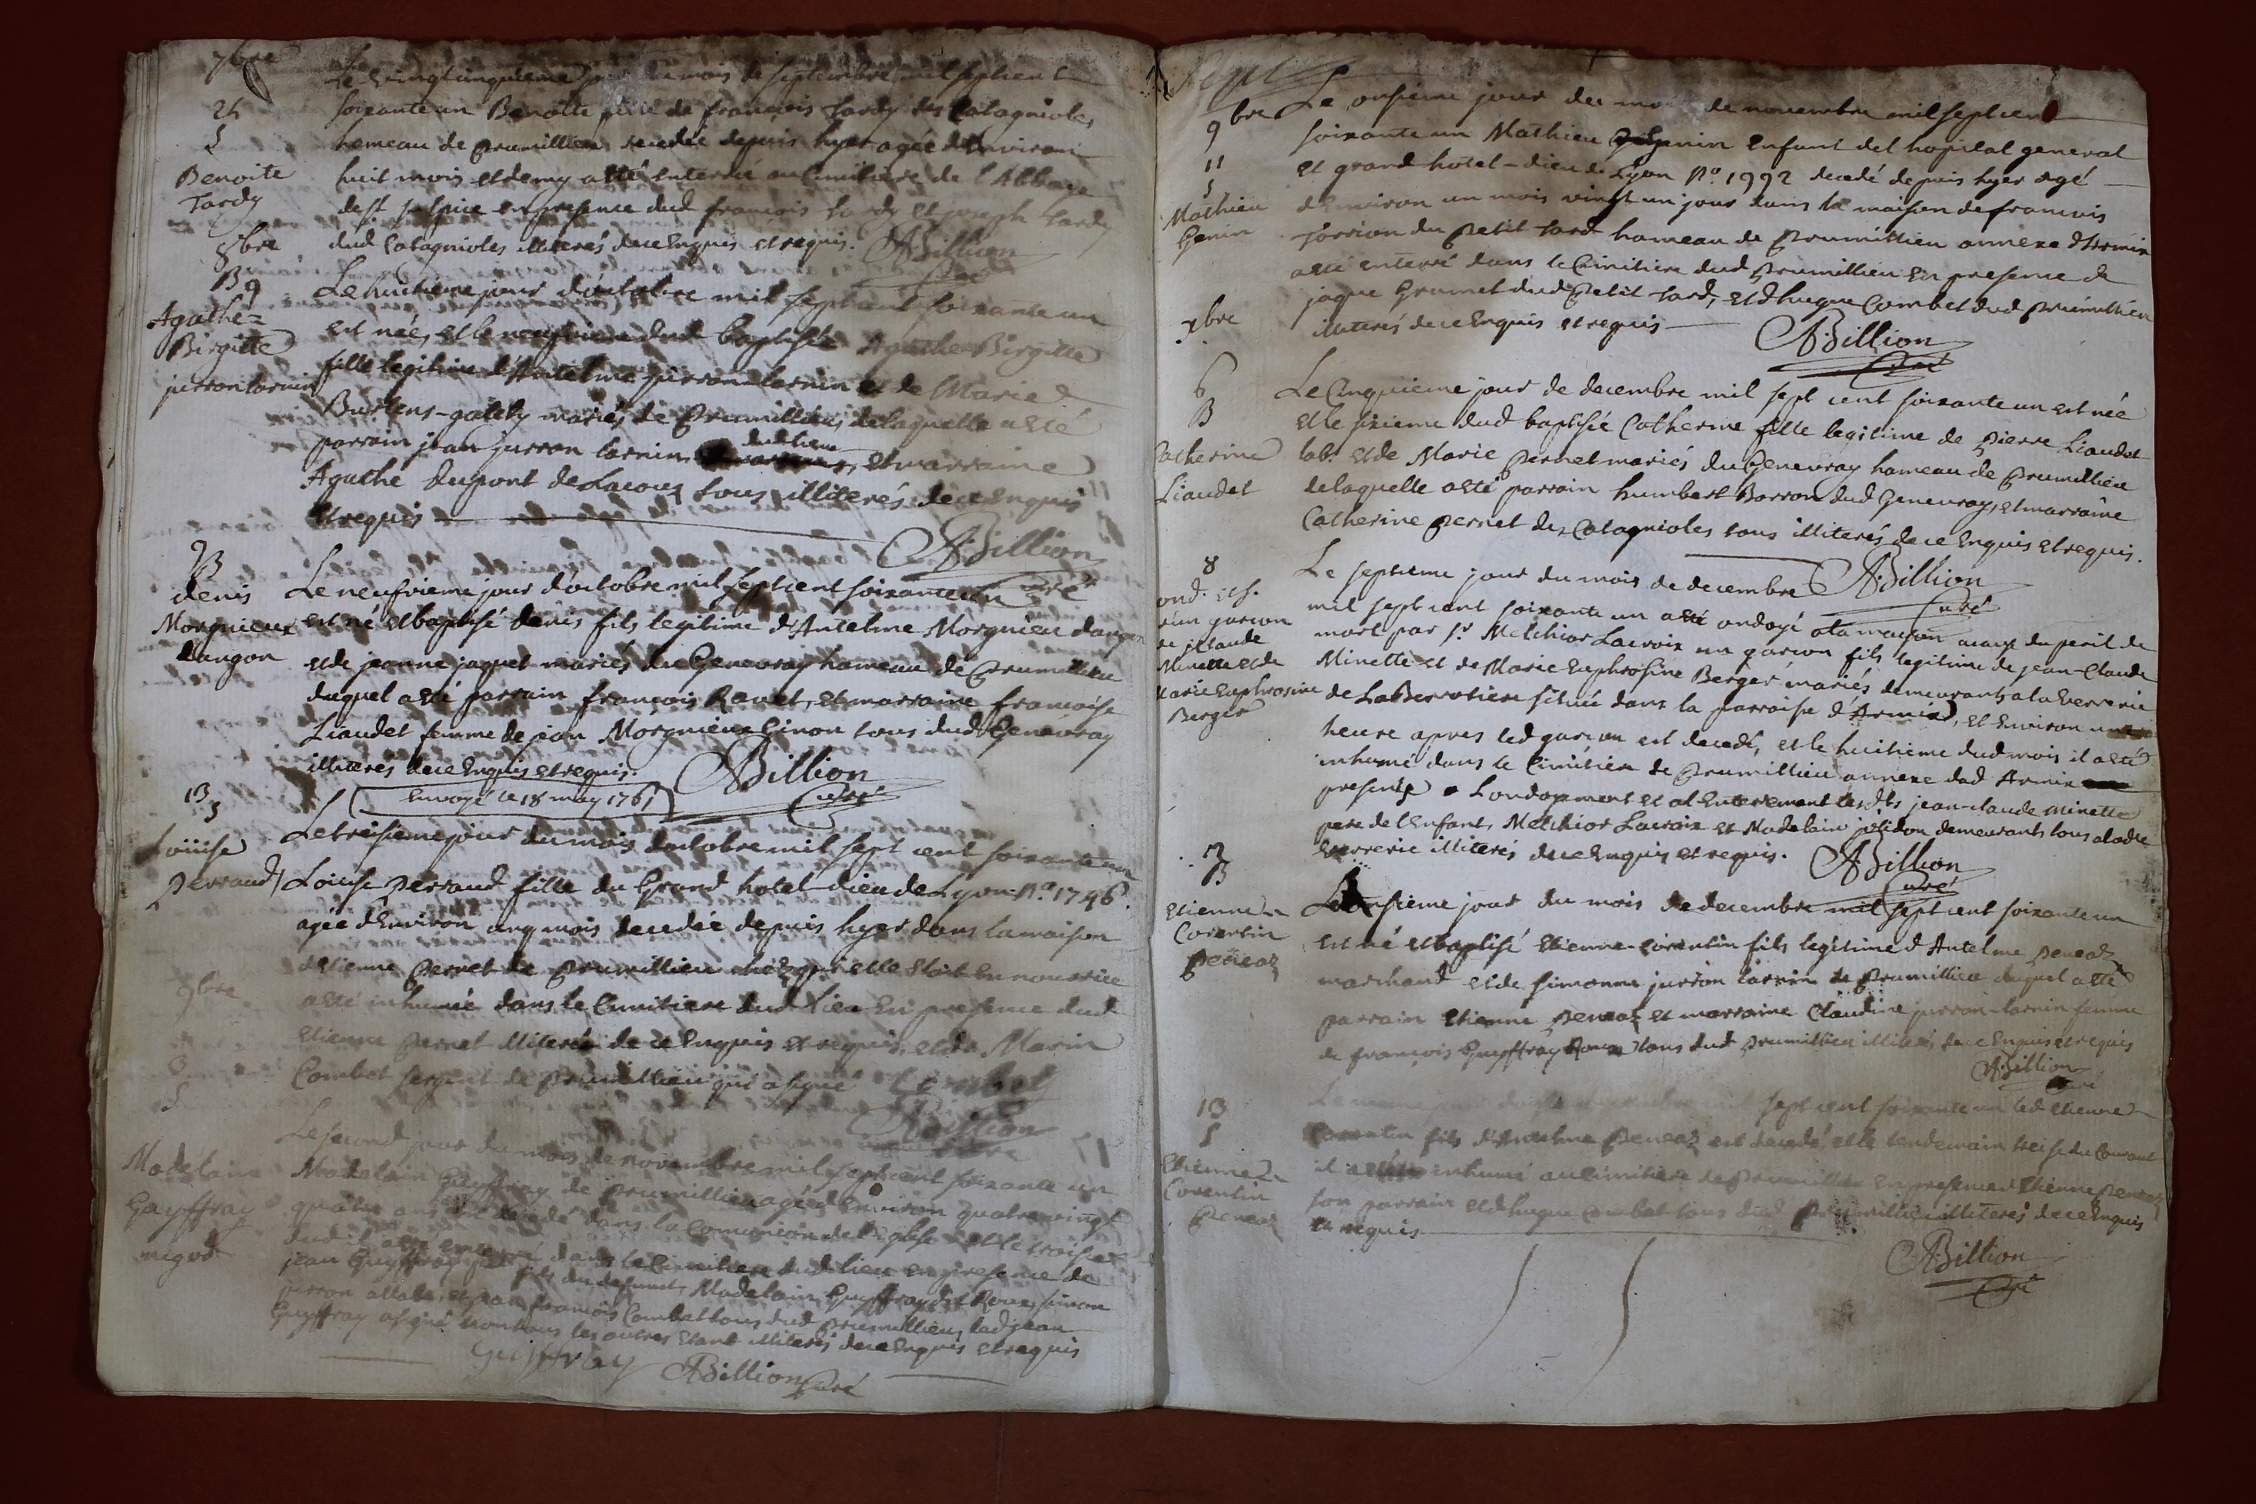 7bre
25
S
Benoite
Tardy
Le vingtcinquieme jour du mois de septembre mil sept cent
soixante un Benoite fille de françois tardy des Catagnioles
hameau de prumillieu decedée depuis hyer agée d'Environ
huit mois et demy a eté enterrée au Cimitiere de l'Abbaye
de st sulpice en presence dud françois tardy et joseph tardy
dud Catagnioles illiterés de ce Enquis et requis. ABillion
Curé
8bre
B 9
Agathe=
Birgitte
jurron larnin
Le huitieme jour d'octobre mil sept cent soixante un
est née, et le neufvieme dud baptisée Agathe-Birgitte
fille legitime d'Antelme jurron larnin et de Marie
mariés de prumillieu de laquelle a eté
parrain jean jurron larnin dud lieu et marraine
Agathe dupont de Lacoux tous illiterés de ce Enquis
et requis ABillion
curé
9
B
denis
Morgnieux
dangon
Le neufvieme jour d'octobre mil sept cent soixante un
est né et baptisé denis fils legitime d'Antelme Morgnieu dangon
et de jeanne jaquet mariés du Genevray hameau de prumillieu
duquel a eté parrain françois Ravet, et marraine françoise
Liaudet femme de jean Morgnieux Ginon tous dud Genevray
illiterés de ce Enquis et requis. ABillion
Curé
Envoyé le 18 may 1761
13
S
Loüise
perraud
Le treisieme jour du mois d'octobre mil sept cent soixante un
Loüise perraud fille du Grand hotel-dieu de Lyon N.º 1746
agée d'Environ cinq mois decedée depuis hyer dans la maison
d'Etienne pernet de prumillieu chez qui elle etoit en nourrice
a eté inhumée dans le Cimitiere dud lieu en presence dud
Etienne pernet illiteré de ce Enquis et requis, et de Marin
Combet sergent de prumillieu qui a signé Combet
ABillion
Curé
9bre
3
S
Madelaine
Guyffray
Le second jour du mois de novembre mil sept cent soixante un
Madelain Guyffray de prumillieu agé d'Environ quatre vingt
quatre ans est decedé dans la Comunion de l'Eglise et le troisieme
dud il a eté enterré dans le Cimitiere dud lieu en presence de
jean Guyffray fils du defunt, Madelain Guyffray dit Roux, simon
jurron et jean françois Combet tous dud prumillieu, led jean
Guyffray a signé non tous les autres etant illiterés de ce Enquis et requis
Guiffray ABillion Curé
9bre
11
S
Mathieu
Genin
Le onsieme jour du mois de novembre mil sept cent
soixante un Mathieu Genin Enfant del hopital general
et grand hotel-dieu de Lyon N.º 1992 decedé depuis hyer agé
d'Environ un mois vingt un jour dans la maison de francois
jorrion du petit tard hameau de prumillieu annexe d'Armix
a eté enterré dans le Cimitiere dud prumillieu en presence de
jaque Grumet dud petit tard, et d'hugue Combet dud prumillieu
illiterés de ce Enquis et requis ABillion
Curé
xbre
6
B
Catherine
Liaudet
Le Cinquieme jour de decembre mil sept cent soixante un est née
et le sixieme dud baptisée Catherine fille legitime de pierre Liaudet
lab.r et de Marie pernet mariés du Genevray hameau de prumillieu
de laquelle a eté parrain humbert Barron dud Genevray, et marraine
Catherine pernet des Catagnioles tous illiterés de ce Enquis et requis.
ABillion
Curé
8
ond. et S.
d'un garcon
de jClaude
Minette et de
Marie Euphrosine
Berger
Le septieme jour du mois de decembre
mil sept cent soixante un a eté ondoyé a la mayson a cause du peril de
mort par s.r Melchior Lacroix un garcon fils legitime de jean-Claude
Minette et de Marie Euphrosine Berger mariés demeurants a la Verrerie
de située dans la parroise d'Armix, et Environ une
heure apres led garcon est decedé, et le huitieme dud mois il a eté
inhumé dans le Cimitiere de prumillieu annexe dud Armix
presents a Londoyement et al Enterrement lesdts jean-claude Minette
pere de l'Enfant, Melchior Lacroix et Madelain demeurants tous a ladte
Verrerie illiterés de ce Enquis et requis. ABillion
Curé
B
Etienne
Corentin
peneaz
Le onsieme jour du mois de decembre mil sept cent soixante un
est né et baptisé Etienne-corentin fils legitime d'Antelme peneaz
marchand et de simonne jurron larnin de prumillieu duquel a eté
parrain Etienne peneaz et marraine Claudine jurron-larnin femme
de françois Guyffray Roux tous dud prumillieu illiterés de ce Enquis et requis
ABillion
Curé
13
S
Etienne
Corentin
peneaz
sept cent soixante un led Etienne
Corentin fils d'Antelme peneaz est decedé, et le lendemain treise du Courant
il a eté inhumé au Cimitiere de prumillieu en presence d'Etienne peneaz
son parrain et d'hugue Combet tous dud prumillieu illiterés de ce Enquis
et requis
ABillion
Curé